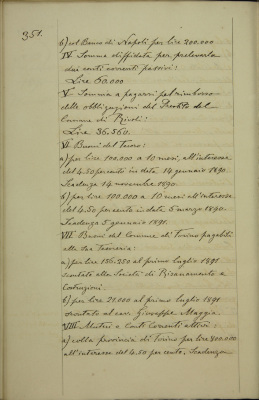 351.
b) sul Banco di Napoli per lire 200.000
IV Somma diffidata per prelevarla
dai conti correnti passivi:
Lire 60.000
V Somma a pagarsi pel rimborso
delle obbligazioni del Prestito del
Comune di Rivoli:
Lire 36.560.
VI Buoni del Tesoro:
a) per lire 100.000 a 10 mesi, all'interesse
del 4.50 per cento in data 14 gennaio 1890.
Scadenza 14 novembre 1890.
b) per lire 100.000 a 10 mesi all'interesse
del 4.50 per cento in data 5 marzo 1890.
Scadenza 5 gennaio 1891.
VII Buoni del Comune di Torino pagabili
alla sua Tesoreria:
a) per lire 136.250 al primo luglio 1891
scontate alla Società di Risanamento e
Costruzioni.
b) per lire 21.000 al primo luglio 1891
scontato al cav. Giuseppe Maggia.
VIII Mutui e Conti Correnti attivi:
a) colla provincia di Torino per lire 800.000
all'interesse del 4.50 per cento, Scadenza